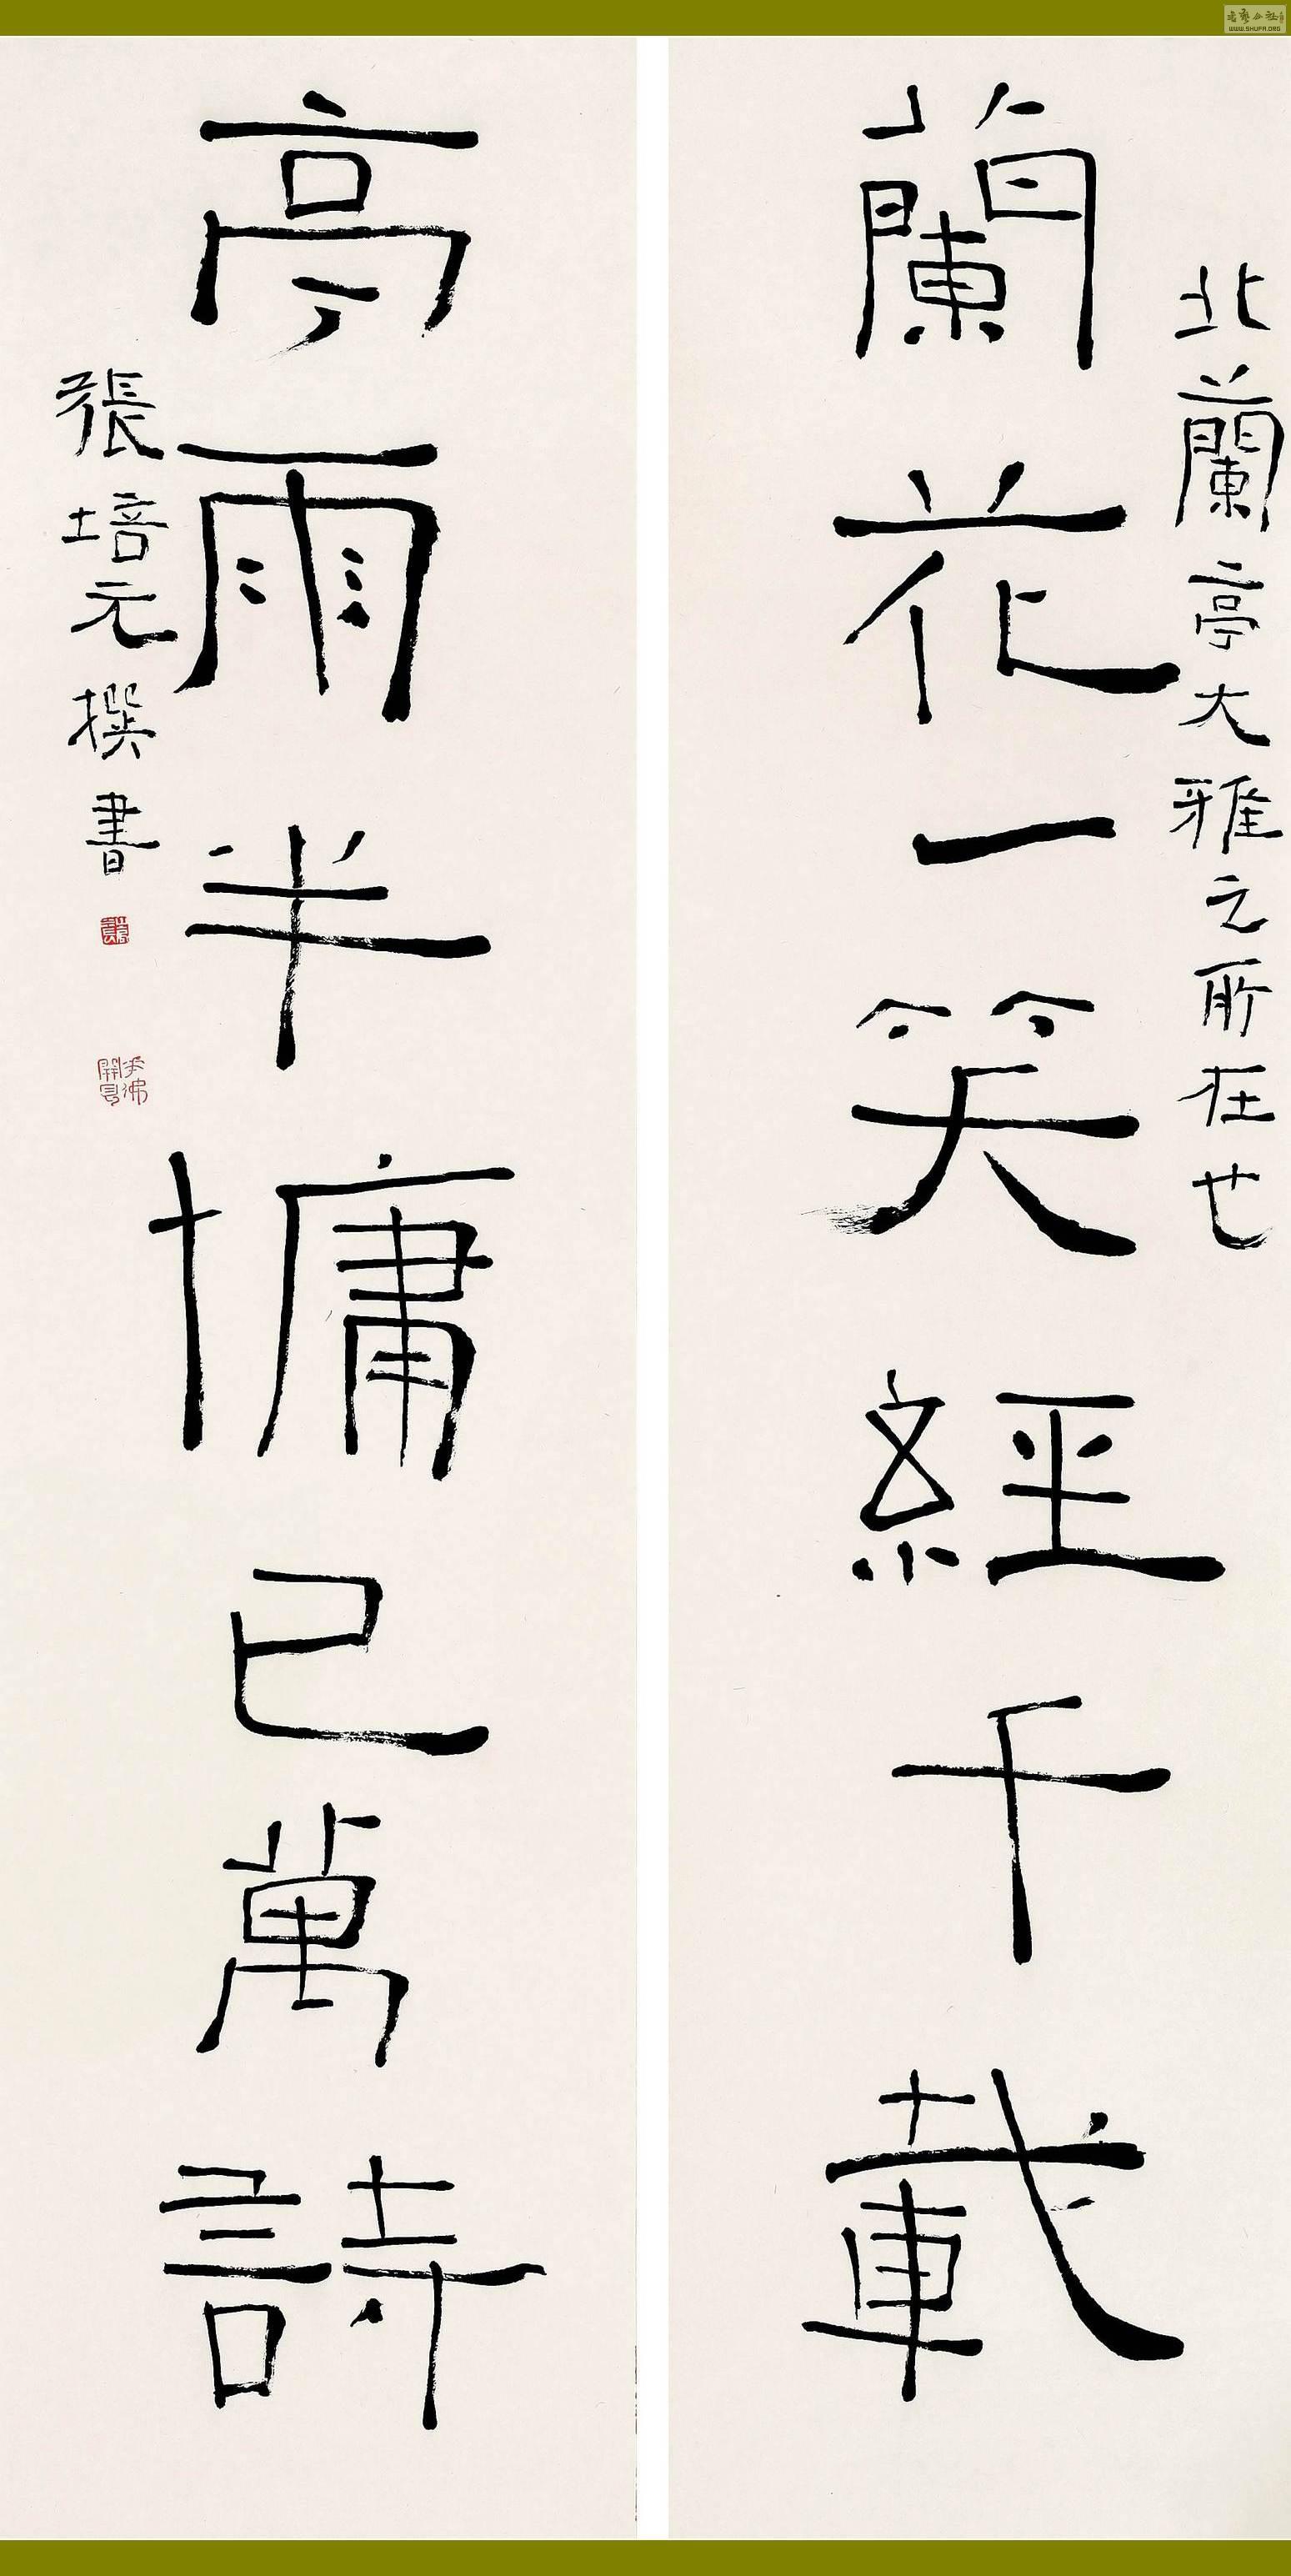 北蘭亭大雅之所在也
蘭花一笑經千載
亭雨半慵已萬詩
張培元撰書
WWW.SHUFA.ORG